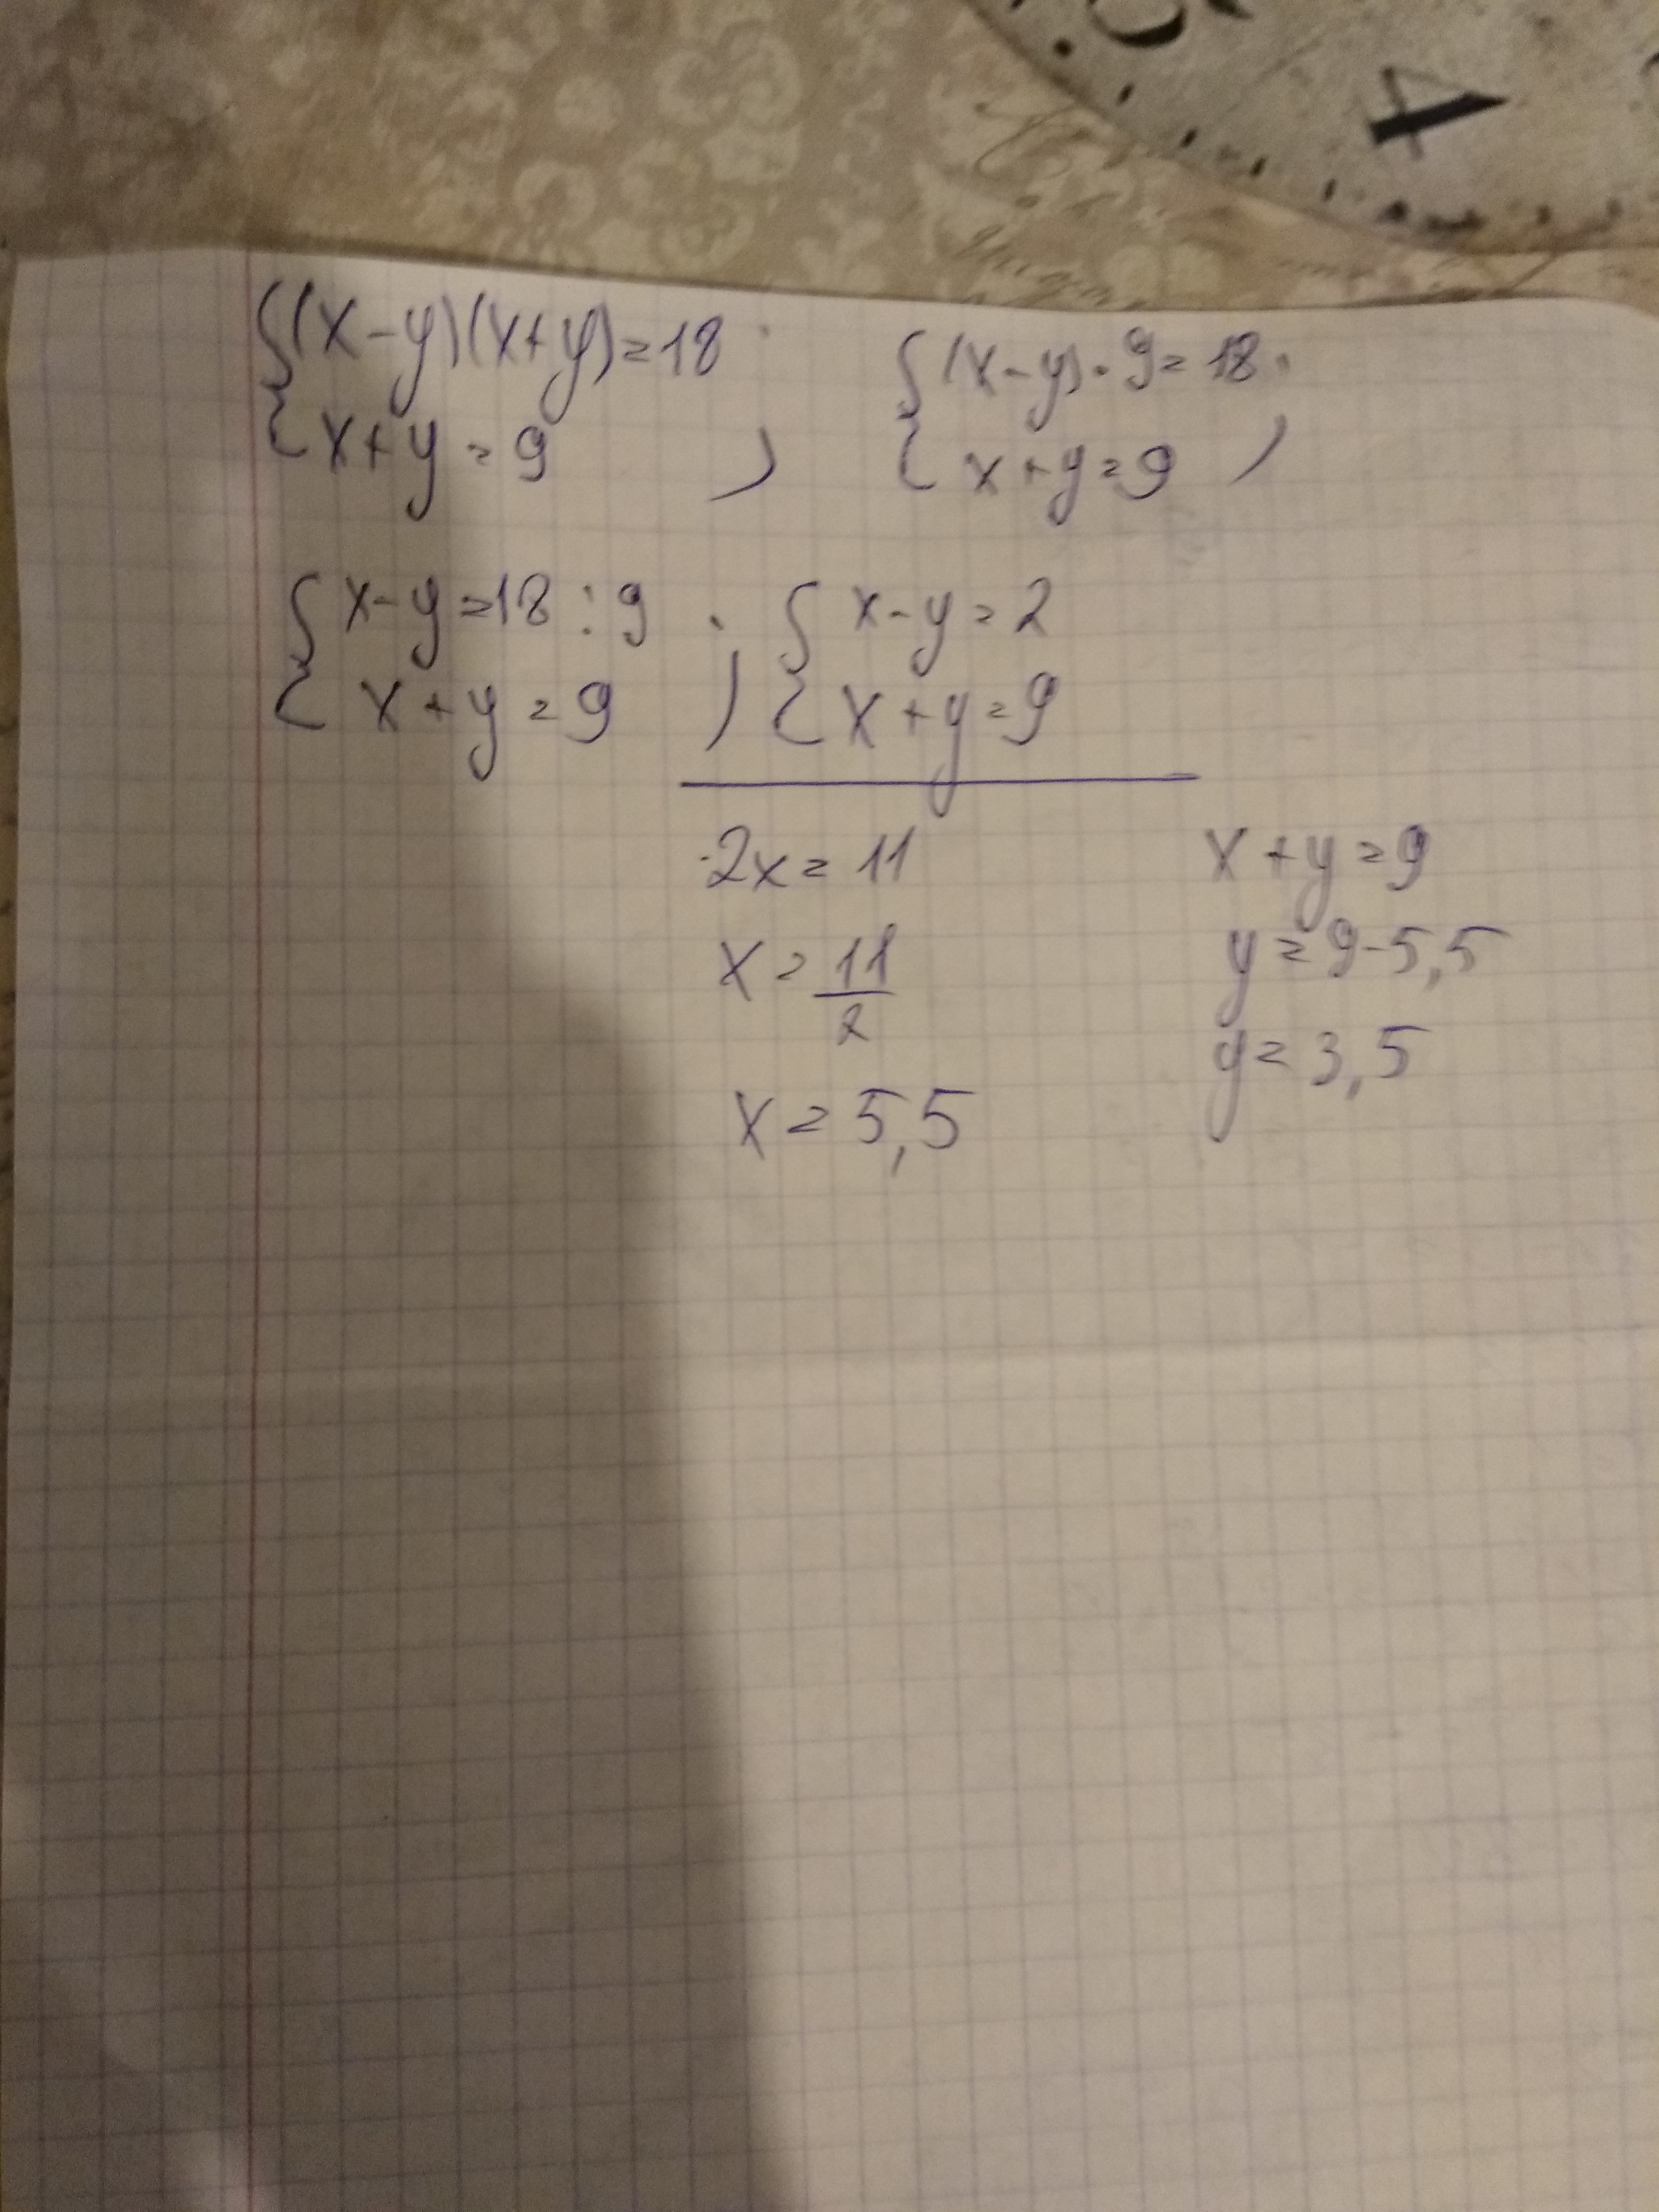 4
{(x-y)(x+y)=18
{x+y=9 ;
{(x-y)·9=18
{x+y=9 ;
{x-y=18:9
{x+y=9 ;
{x-y=2
{x+y=9
2x=11
x=11/2
x=5,5
x+y=9
y=9-5,5
y=3,5